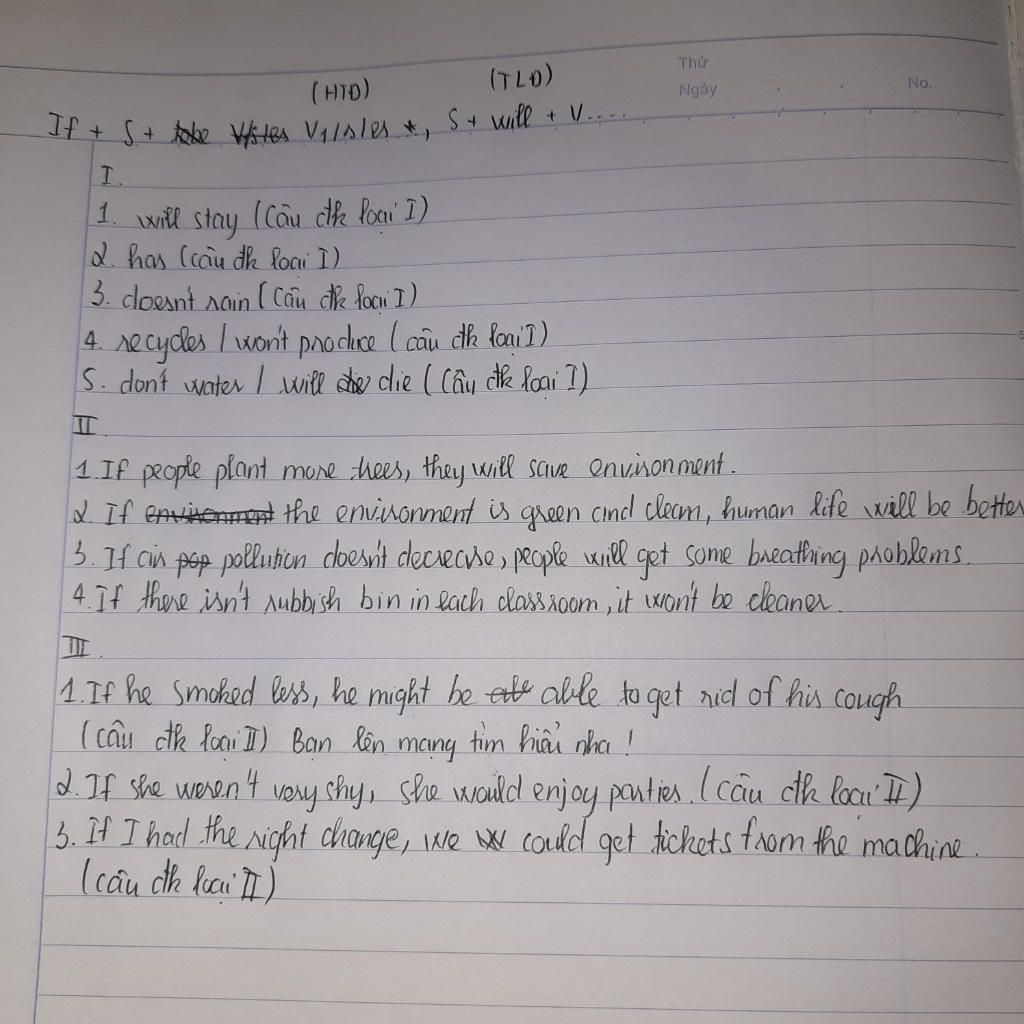 (HTĐ) (TLĐ) Thứ
Ngày No.
If + S + V1/s/es, S + will + V....
I.
1. will stay (Câu đk loại I)
2. has (câu đk loại I)
3. doesn't rain (Câu đk loại I)
4. recycles / won't produce (câu đk loại I)
5. don't water / will die (Câu đk loại I)
II
1. If people plant more trees, they will save environment.
2. If environment the environment is green and clean, human life will be better
3. If air pop pollution doesn't decrease, people will get some breathing problems.
4. If there isn't rubbish bin in each classroom, it won't be cleaner.
III.
1. If he smoked less, he might be able to get rid of his cough
(câu đk loại II) Bạn lên mạng tìm hiểu nha!
2. If she weren't very shy, she would enjoy parties. (câu đk loại II)
3. If I had the right change, we could get tickets from the machine.
(câu đk loại II)